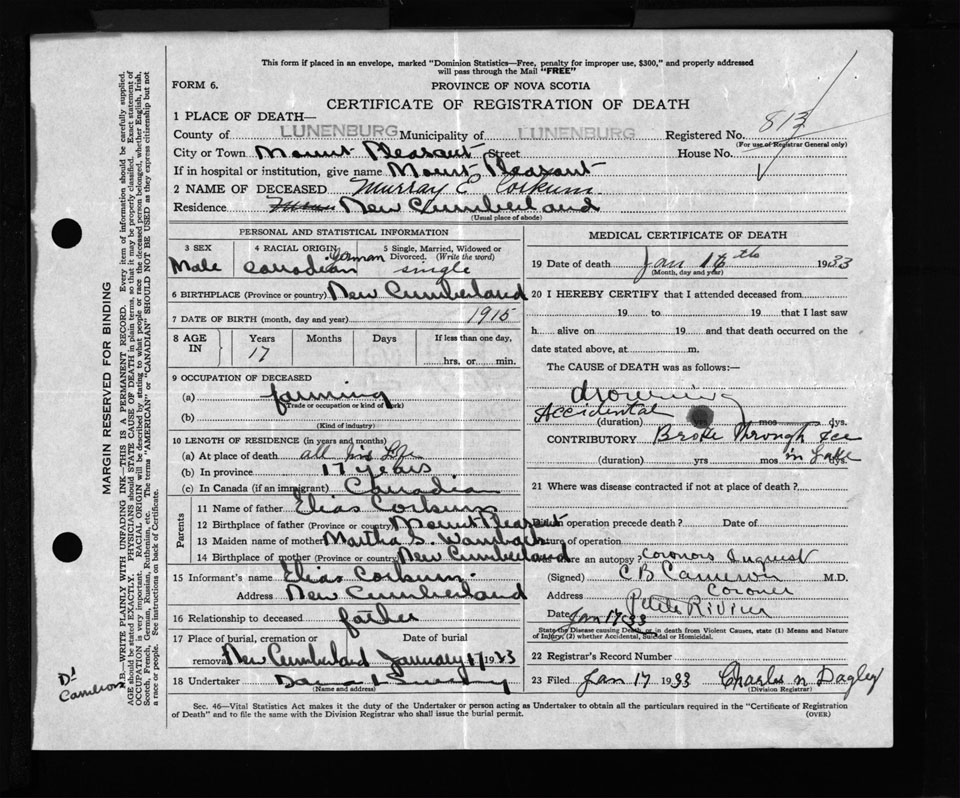 This form if placed in an envelope, marked "Dominion Statistics—Free, penalty for improper use, $300," and properly addressed
will pass through the Mail "FREE"
FORM 6.
PROVINCE OF NOVA SCOTIA
CERTIFICATE OF REGISTRATION OF DEATH
1 PLACE OF DEATH—
County of LUNENBURG Municipality of LUNENBURG Registered No. 813
(For use of Registrar General only)
City or Town Mount Pleasant Street House No.
If in hospital or institution, give name Mount Pleasant
2 NAME OF DECEASED Murray E Corkum
Residence New Cumberland
(Usual place of abode)
PERSONAL AND STATISTICAL INFORMATION
3 SEX
Male
4 RACIAL ORIGIN
German
Canadian
5 Single, Married, Widowed or
Divorced. (Write the word)
single
6 BIRTHPLACE (Province or country) New Cumberland
7 DATE OF BIRTH (month, day and year) 1915
8 AGE IN
Years
17
Months
Days
If less than one day,
hrs. or min.
9 OCCUPATION OF DECEASED
(a) farming
(Trade or occupation or kind of work)
(b)
(Kind of industry)
10 LENGTH OF RESIDENCE (in years and months)
(a) At place of death all his Life
(b) In province 17 years
(c) In Canada (if an immigrant) Canadian
Parents
11 Name of father Elias Corkum
12 Birthplace of father (Province or country) Mount Pleasant
13 Maiden name of mother Martha S. Wambach
14 Birthplace of mother (Province or country) New Cumberland
15 Informant's name Elias Corkum
Address New Cumberland
16 Relationship to deceased father
17 Place of burial, cremation or Date of burial
removal New Cumberland January 17 1933
18 Undertaker
(Name and address)
MEDICAL CERTIFICATE OF DEATH
19 Date of death Jan 16th 1933
(Month, day and year)
20 I HEREBY CERTIFY that I attended deceased from
19 to 19 that I last saw
h alive on 19 and that death occurred on
date stated above, at m.
The CAUSE of DEATH was as follows:—
drowning
Accidental
(duration) mos dys.
CONTRIBUTORY Broke Through Ice
in Lake
(duration) yrs mos dys.
21 Where was disease contracted if not at place of death?
Did an operation precede death? Date of
Nature of operation
Was there an autopsy? Coroners Inquest
(Signed) C B Cameron M.D.
Coroner
Address Petite Riviere
Date Jan 17 33
State the Disease causing Death, or in death from Violent Causes, state (1) Means and Nature
of Injury, (2) whether Accidental, Suicidal or Homicidal.
22 Registrar's Record Number
23 Filed Jan 17 1933 Charles N Dagley
(Division Registrar)
Sec. 46—Vital Statistics Act makes it the duty of the Undertaker or person acting as Undertaker to obtain all the particulars required in the "Certificate of Registration
of Death" and to file the same with the Division Registrar who shall issue the burial permit. (OVER)
MARGIN RESERVED FOR BINDING
N.B.—WRITE PLAINLY WITH UNFADING INK—THIS IS A PERMANENT RECORD. Every item of information should be carefully supplied.
AGE should be stated EXACTLY. PHYSICIANS should STATE CAUSE OF DEATH in plain terms, so that it may be properly classified. Exact statement of
OCCUPATION is very important. RACIAL ORIGIN will be described by stating to what people or race the deceased person belonged, whether English, Irish,
Scotch, French, German, Russian, Ruthenian, etc. The terms "AMERICAN" or "CANADIAN" SHOULD NOT BE USED as they express citizenship but not
a race or people. See instructions on back of Certificate.
Dr
Cameron